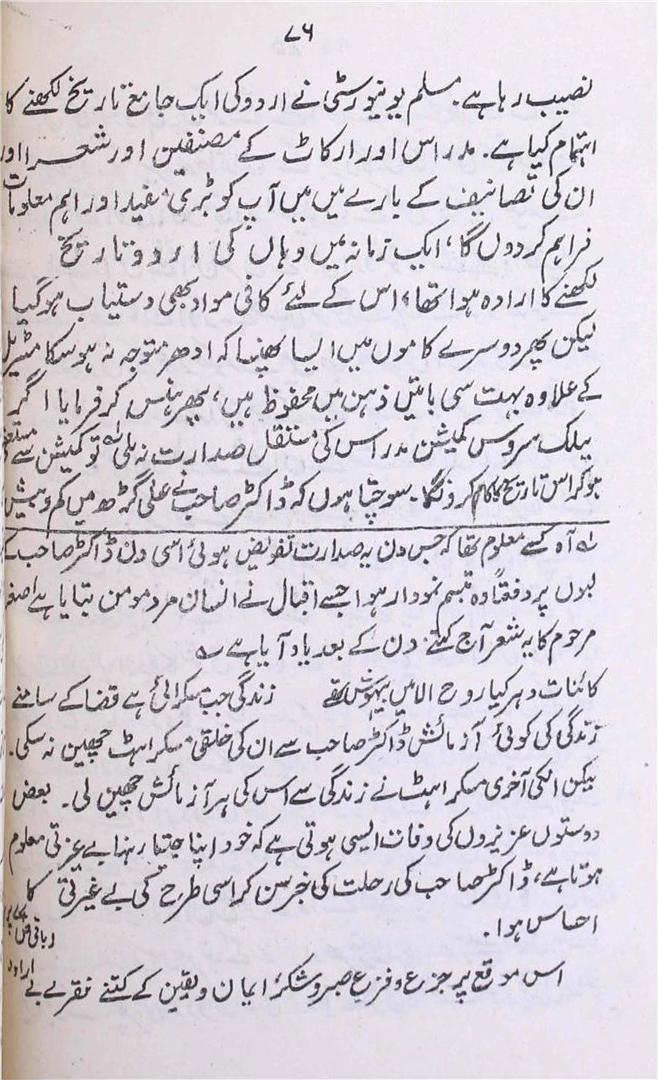 ۷۶
نصیب رہا ہے۔ مسلم یونیورسٹی نے اردو کی ایک جامع تاریخ لکھنے کا
اہتمام کیا ہے۔ مدراس اور ارکاٹ کے مصنفین اور شعرا اور
ان کی تصانیف کے بارے میں میں آپ کو بڑی مفید اور اہم معلومات
فراہم کر دوں گا، ایک زمانہ میں وہاں کی اردو تاریخ
لکھنے کا ارادہ ہوا تھا، اس کے لئے کافی مواد بھی دستیاب ہو گیا
لیکن پھر دوسرے کاموں میں ایسا پھنسا کہ ادھر متوجہ نہ ہو سکا مٹیریل
کے علاوہ بہت سی باتیں ذہن میں محفوظ ہیں، پھر ہنس کر فرمایا اگر
پبلک سروس کمیشن مدراس کی مستقل صدارت نہ ملی لہ تو کمیشن سے مستعفی
ہو کر اس تاریخ کا کام کرونگا۔ سوچتا ہوں کہ ڈاکٹر صاحب نے علی گڑھ میں کم و بیش
لہ آہ کسے معلوم تھا کہ جس دن یہ صدارت تفویض ہوئی اسی دن ڈاکٹر صاحب کے
لبوں پر دفعتاً وہ تبسم نمودار ہوا جسے اقبال نے انسان مرد مومن بتایا ہے اصغر
مرحوم کا یہ شعر آج کتنے دن کے بعد یاد آیا ہے ؎
کائنات دہر کیا روح الامیں بیہوش تھے زندگی جب مسکرائی ہے قضا کے سامنے
زندگی کی کوئی آزمائش ڈاکٹر صاحب سے ان کی خلقی مسکراہٹ چھین نہ سکی۔
لیکن انکی آخری مسکراہٹ نے زندگی سے اس کی ہر آزمائش چھین لی۔ بعض
دوستوں عزیزوں کی وفات ایسی ہوتی ہے کہ خود اپنا جیتا رہنا بے عزتی معلوم
ہوتا ہے، ڈاکٹر صاحب کی رحلت کی خبر سن کر اسی طرح کی بے غیرتی کا
احساس ہوا۔
(باقی ص ۷۷ پر)
اس موقع پر جزع و فزع صبر و شکر، ایمان و یقین کے کتنے فقرے بے ارادہ